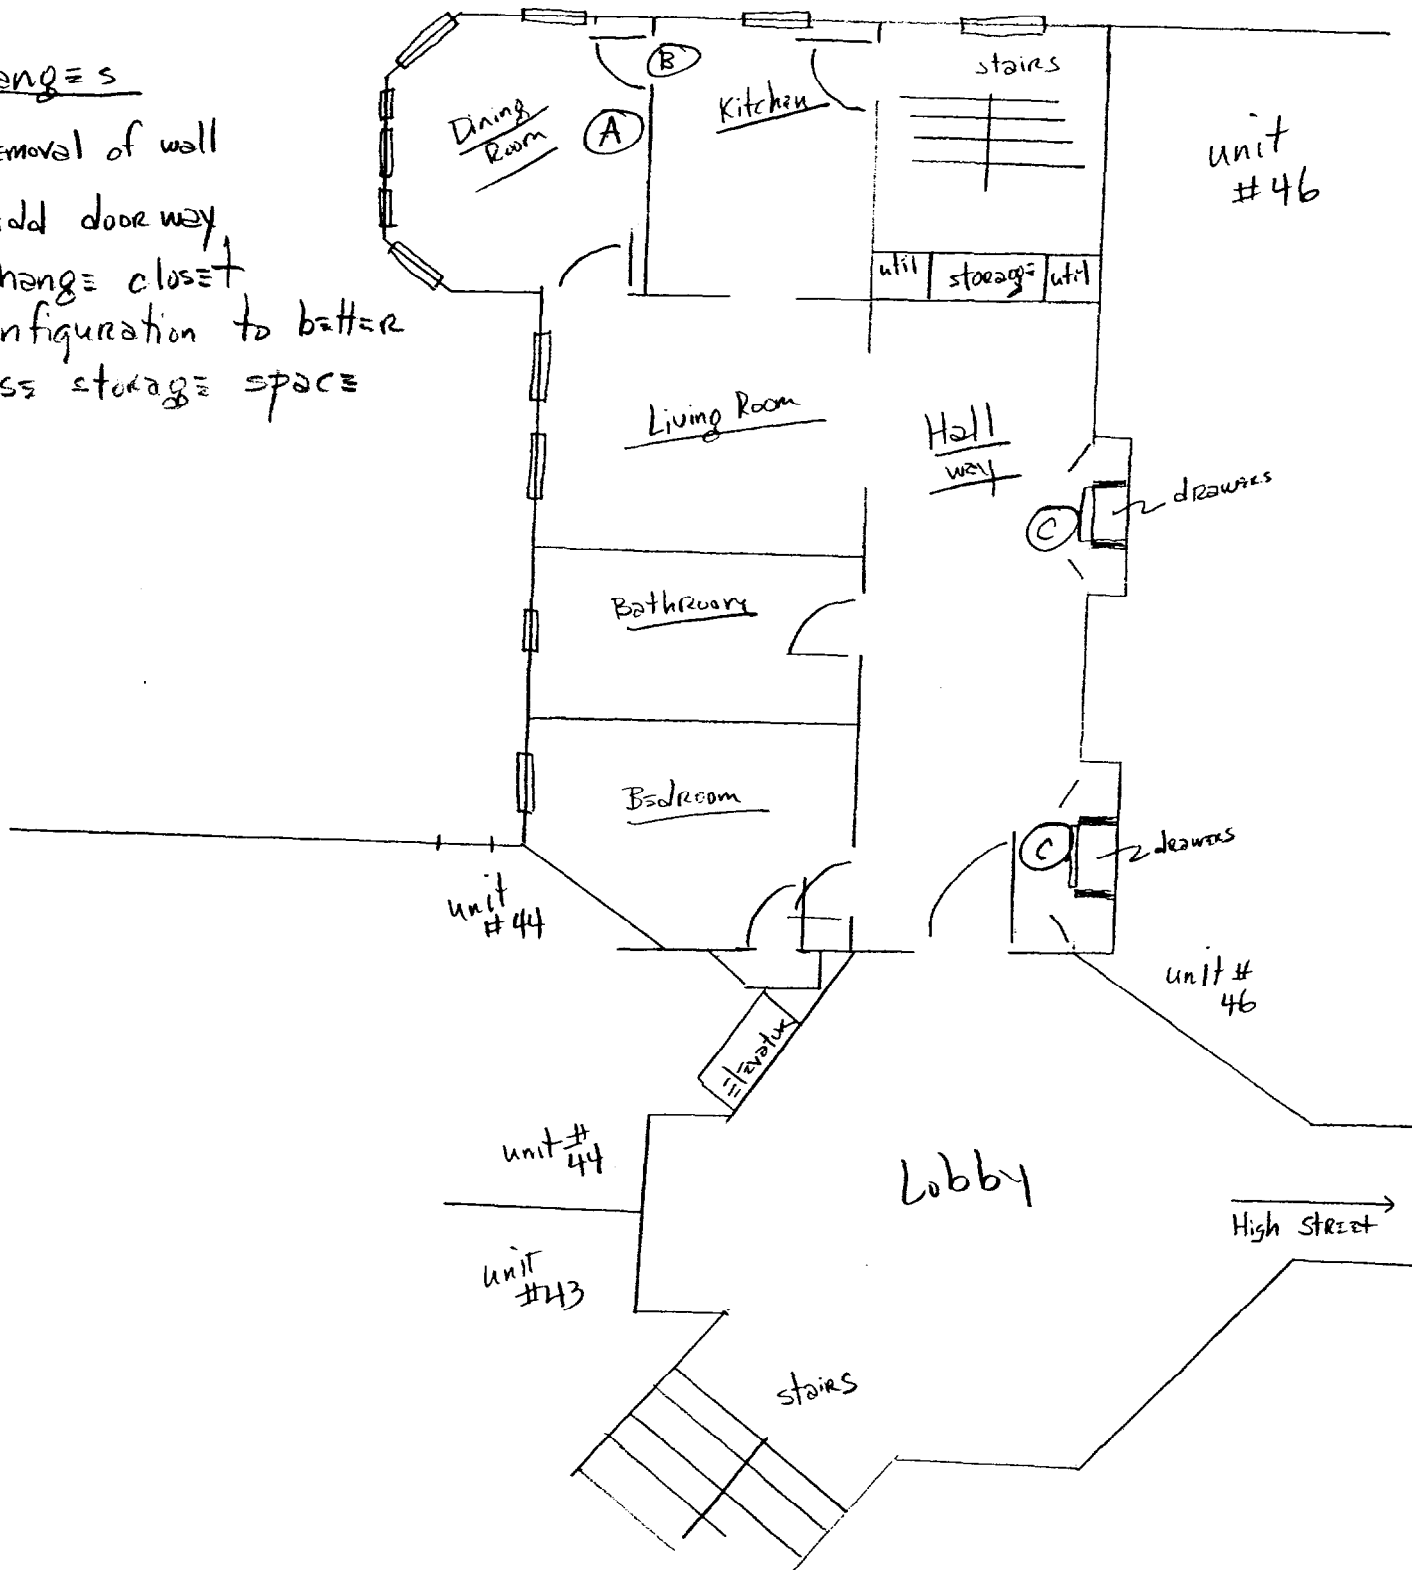 anges
emoval of wall
dd doorway
hange closet
nfiguration to better
se storage space
Dining
Room
A
B
Kitchen
stairs
unit
#46
util
storage
util
Living Room
Hall
way
C
drawers
Bathroom
Bedroom
C
drawers
unit
#44
unit #
46
Elevator
unit #
44
Lobby
High Street
unit
#43
stairs